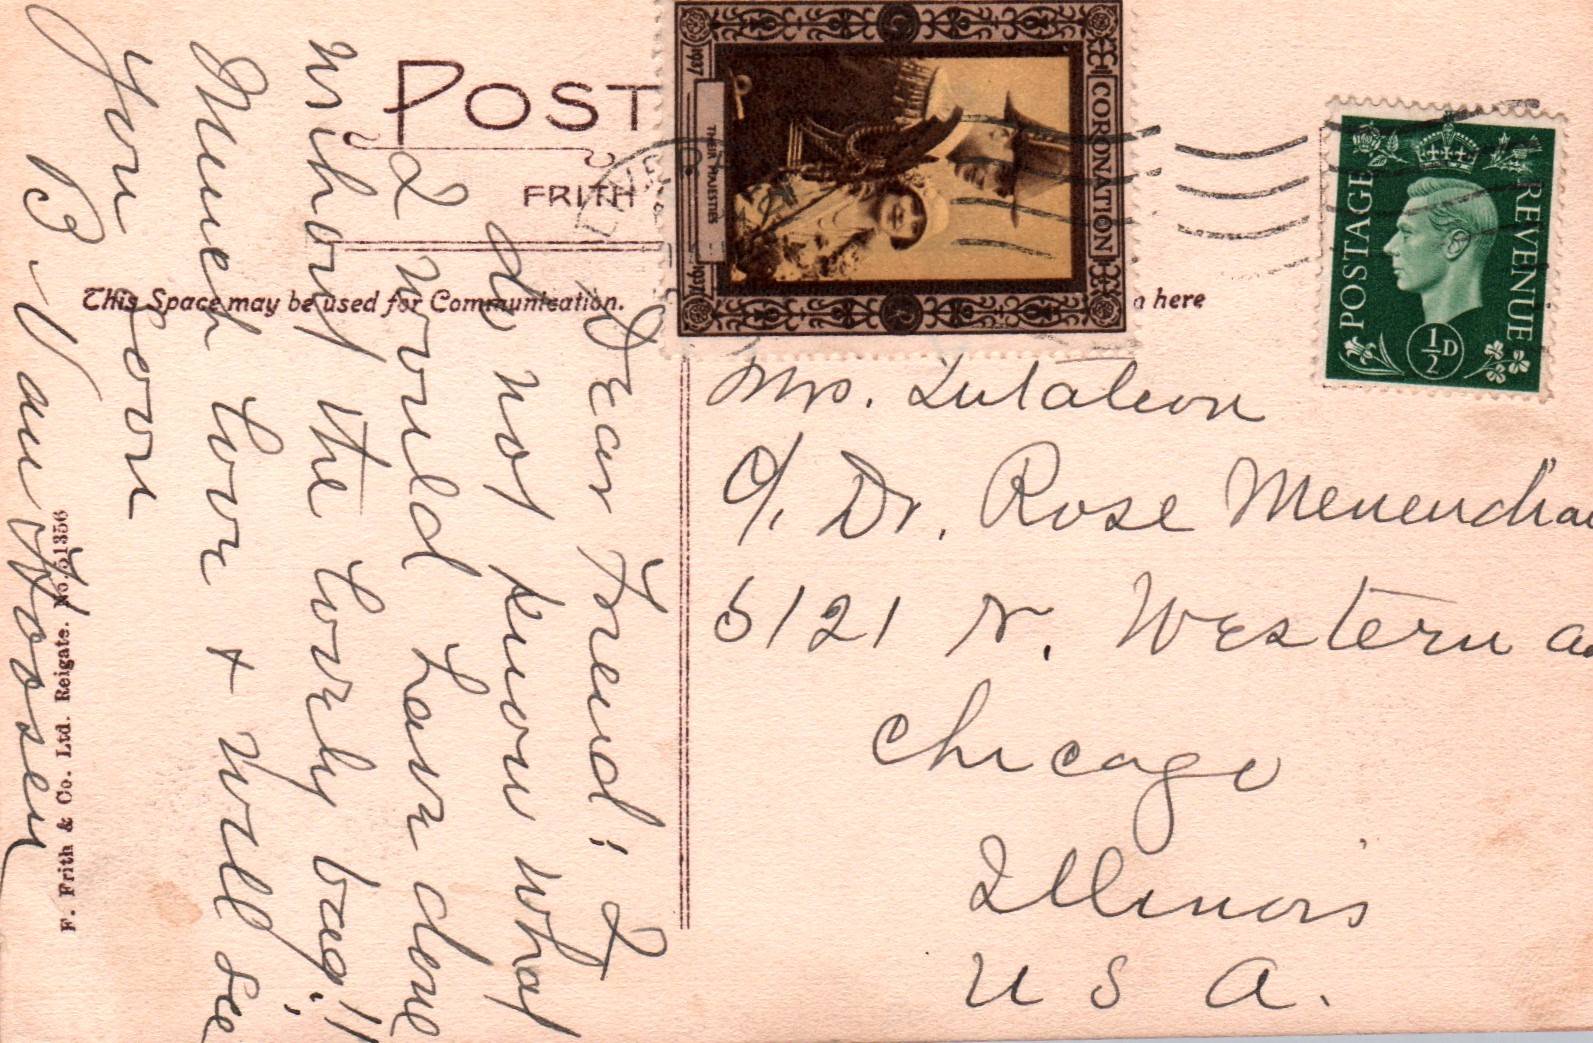 POST
FRITH
This Space may be used for Communication.
n here
CORONATION
1937
1937
THEIR MAJESTIES
POSTAGE
REVENUE
½D
Dear Friend; I
do not know what
I would have done
without the lovely bag!!
Much love & will see
you soon
B Van
Mrs.
c/. Dr. Rose
5121 N. Western
Chicago
Illinois
U S A.
F. Frith & Co. Ltd. Reigate. No. 51356